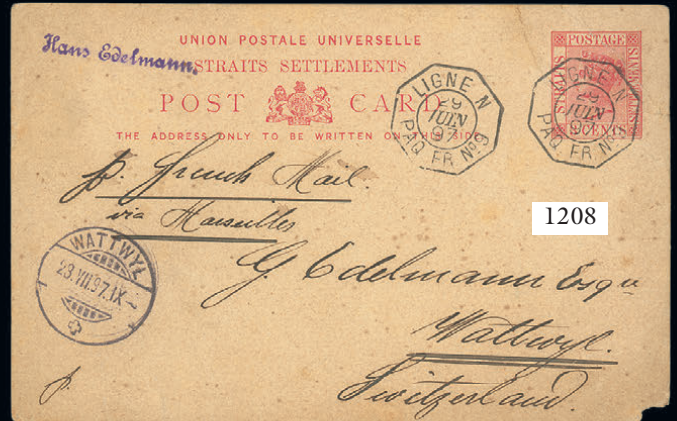 Hans Edelmann.
UNION POSTALE UNIVERSELLE
STRAITS SETTLEMENTS
POST CARD
THE ADDRESS ONLY TO BE WRITTEN ON THIS SIDE
POSTAGE
STRAITS
SETTLEMENTS
CENTS
LIGNE N
29
JUIN
97
PAQ. FR. Nº 9
LIGNE N
29
JUIN
97
PAQ. FR. Nº 9
p. French Mail.
via Marseilles
1208
WATTWYL
23.VII.97.IX
G Edelmann Esqre
Wattwyl.
Switzerland.
p.